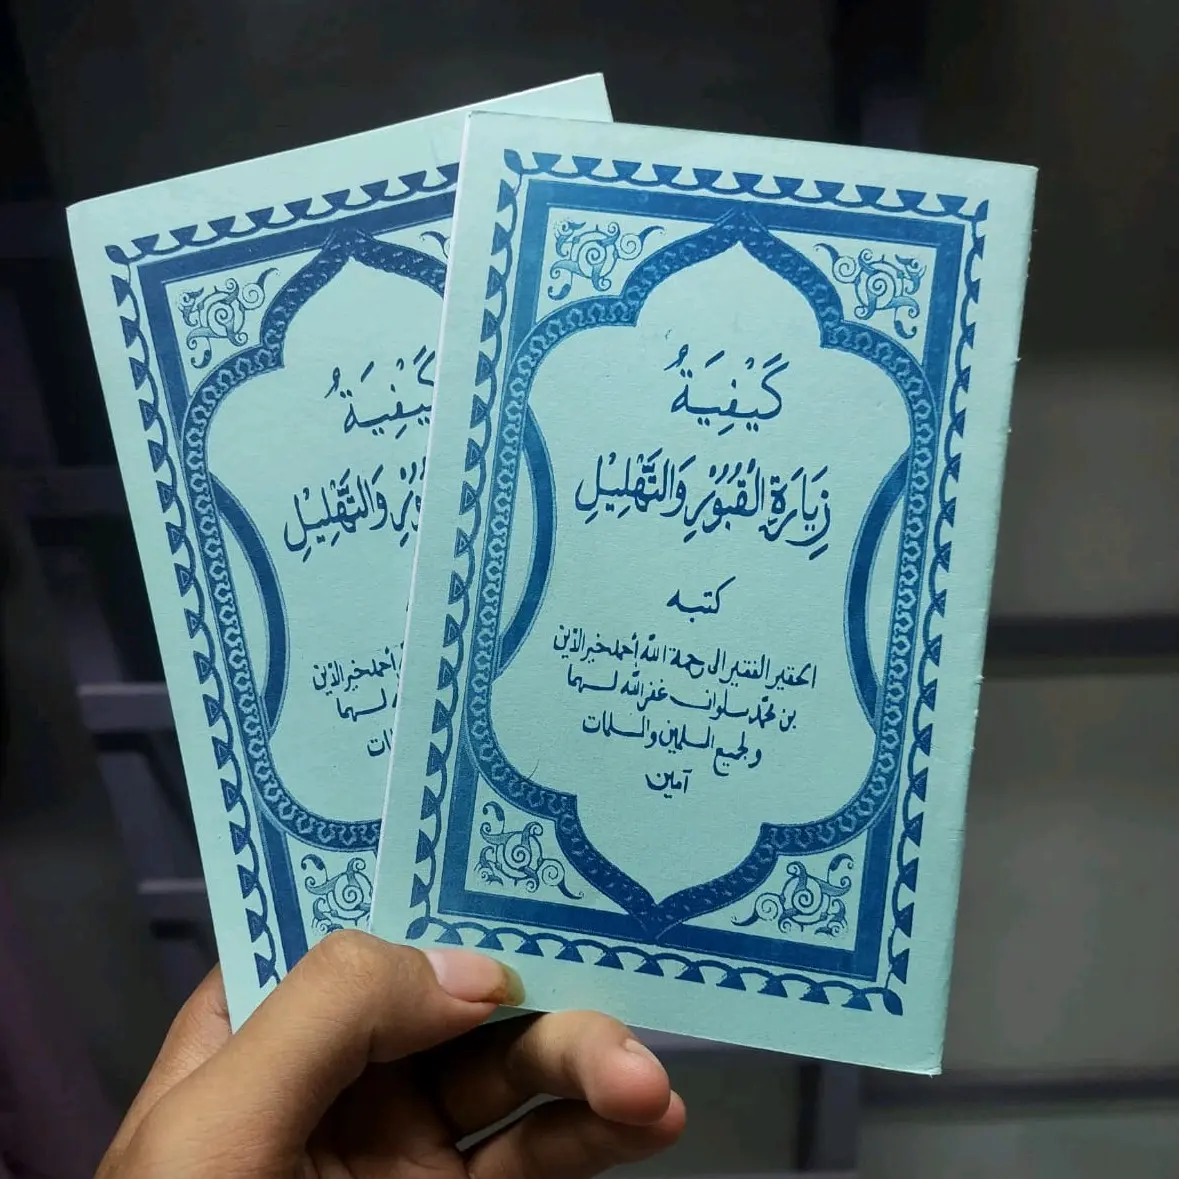 كَيْفِيَةُ
زِيَارَةِ الْقُبُوْرِ وَالتَّهْلِيْلِ
كتبه
الحقير الفقير الى رحمة الله أحمد خير الدين
بن محمّد سلوان غفر الله لهما
ولجميع المسلمين والمسلمات
آمين
كَيْفِيَةُ
ـبُوْرِ وَالتَّهْلِيْلِ
أحمد خير الدين
لهما
ـات